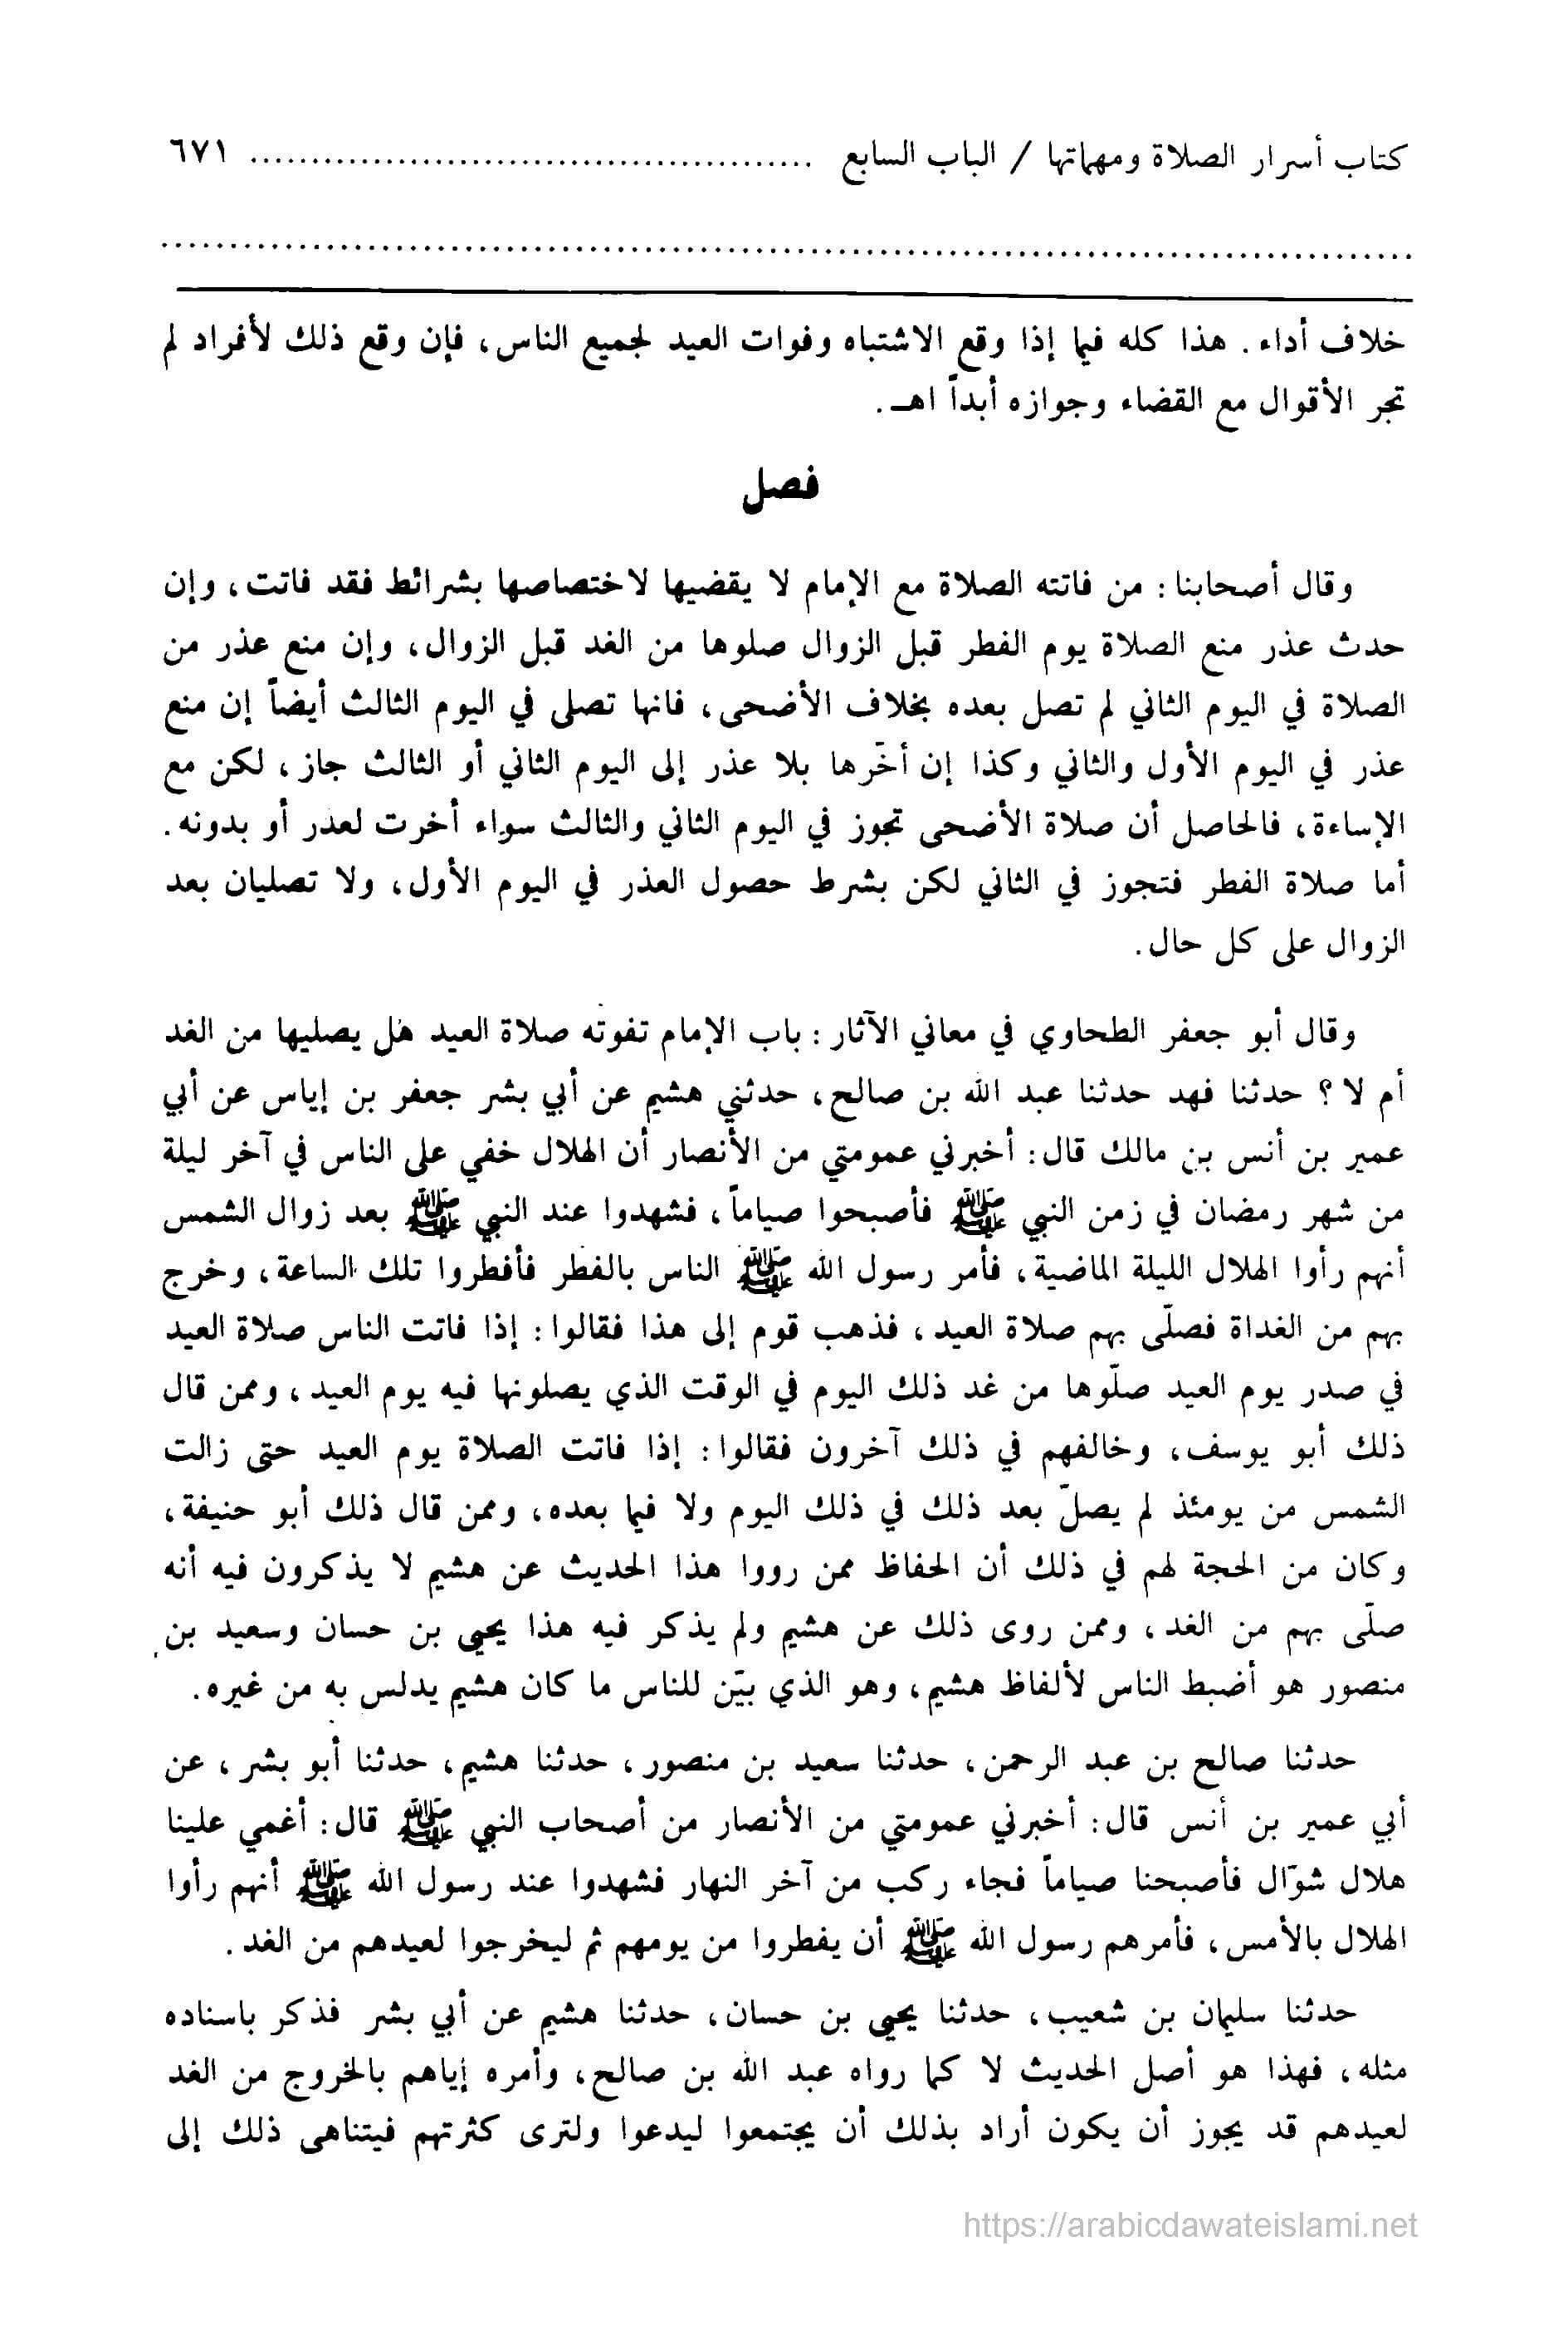 كتاب أسرار الصلاة ومهماتها / الباب السابع ............................................... ٦٧١
...............................................................................................
خلاف أداء. هذا كله فيما إذا وقع الاشتباه وفوات العيد لجميع الناس، فإن وقع ذلك لأفراد لم
تجر الأقوال مع القضاء وجوازه أبداً اهـ.
فصل
وقال أصحابنا: من فاتته الصلاة مع الإمام لا يقضيها لاختصاصها بشرائط فقد فاتت، وإن
حدث عذر منع الصلاة يوم الفطر قبل الزوال صلوها من الغد قبل الزوال، وإن منع عذر من
الصلاة في اليوم الثاني لم تصل بعده بخلاف الأضحى، فانها تصلى في اليوم الثالث أيضاً إن منع
عذر في اليوم الأول والثاني وكذا إن أخّرها بلا عذر إلى اليوم الثاني أو الثالث جاز، لكن مع
الإساءة، فالحاصل أن صلاة الأضحى تجوز في اليوم الثاني والثالث سواء أخرت لعذر أو بدونه.
أما صلاة الفطر فتجوز في الثاني لكن بشرط حصول العذر في اليوم الأول، ولا تصليان بعد
الزوال على كل حال.
وقال أبو جعفر الطحاوي في معاني الآثار: باب الإمام تفوته صلاة العيد هل يصليها من الغد
أم لا؟ حدثنا فهد حدثنا عبد الله بن صالح، حدثني هشيم عن أبي بشر جعفر بن إياس عن أبي
عمير بن أنس بن مالك قال: أخبرني عمومتي من الأنصار أن الهلال خفي على الناس في آخر ليلة
من شهر رمضان في زمن النبي ﷺ فأصبحوا صياماً، فشهدوا عند النبي ﷺ بعد زوال الشمس
أنهم رأوا الهلال الليلة الماضية، فأمر رسول الله ﷺ الناس بالفطر فأفطروا تلك الساعة، وخرج
بهم من الغداة فصلّى بهم صلاة العيد، فذهب قوم إلى هذا فقالوا: إذا فاتت الناس صلاة العيد
في صدر يوم العيد صلّوها من غد ذلك اليوم في الوقت الذي يصلونها فيه يوم العيد، وممن قال
ذلك أبو يوسف، وخالفهم في ذلك آخرون فقالوا: إذا فاتت الصلاة يوم العيد حتى زالت
الشمس من يومئذ لم يصلّ بعد ذلك في ذلك اليوم ولا فيما بعده، وممن قال ذلك أبو حنيفة،
وكان من الحجة لهم في ذلك أن الحفاظ ممن رووا هذا الحديث عن هشيم لا يذكرون فيه أنه
صلّى بهم من الغد، وممن روى ذلك عن هشيم ولم يذكر فيه هذا يحيى بن حسان وسعيد بن
منصور هو أضبط الناس لألفاظ هشيم، وهو الذي بيّن للناس ما كان هشيم يدلس به من غيره.
حدثنا صالح بن عبد الرحمن، حدثنا سعيد بن منصور، حدثنا هشيم، حدثنا أبو بشر، عن
أبي عمير بن أنس قال: أخبرني عمومتي من الأنصار من أصحاب النبي ﷺ قال: أغمي علينا
هلال شوّال فأصبحنا صياماً فجاء ركب من آخر النهار فشهدوا عند رسول الله ﷺ أنهم رأوا
الهلال بالأمس، فأمرهم رسول الله ﷺ أن يفطروا من يومهم ثم ليخرجوا لعيدهم من الغد.
حدثنا سليمان بن شعيب، حدثنا يحيى بن حسان، حدثنا هشيم عن أبي بشر فذكر باسناده
مثله، فهذا هو أصل الحديث لا كما رواه عبد الله بن صالح، وأمره إياهم بالخروج من الغد
لعيدهم قد يجوز أن يكون أراد بذلك أن يجتمعوا ليدعوا ولترى كثرتهم فيتناهى ذلك إلى
https://arabicdawateislami.net